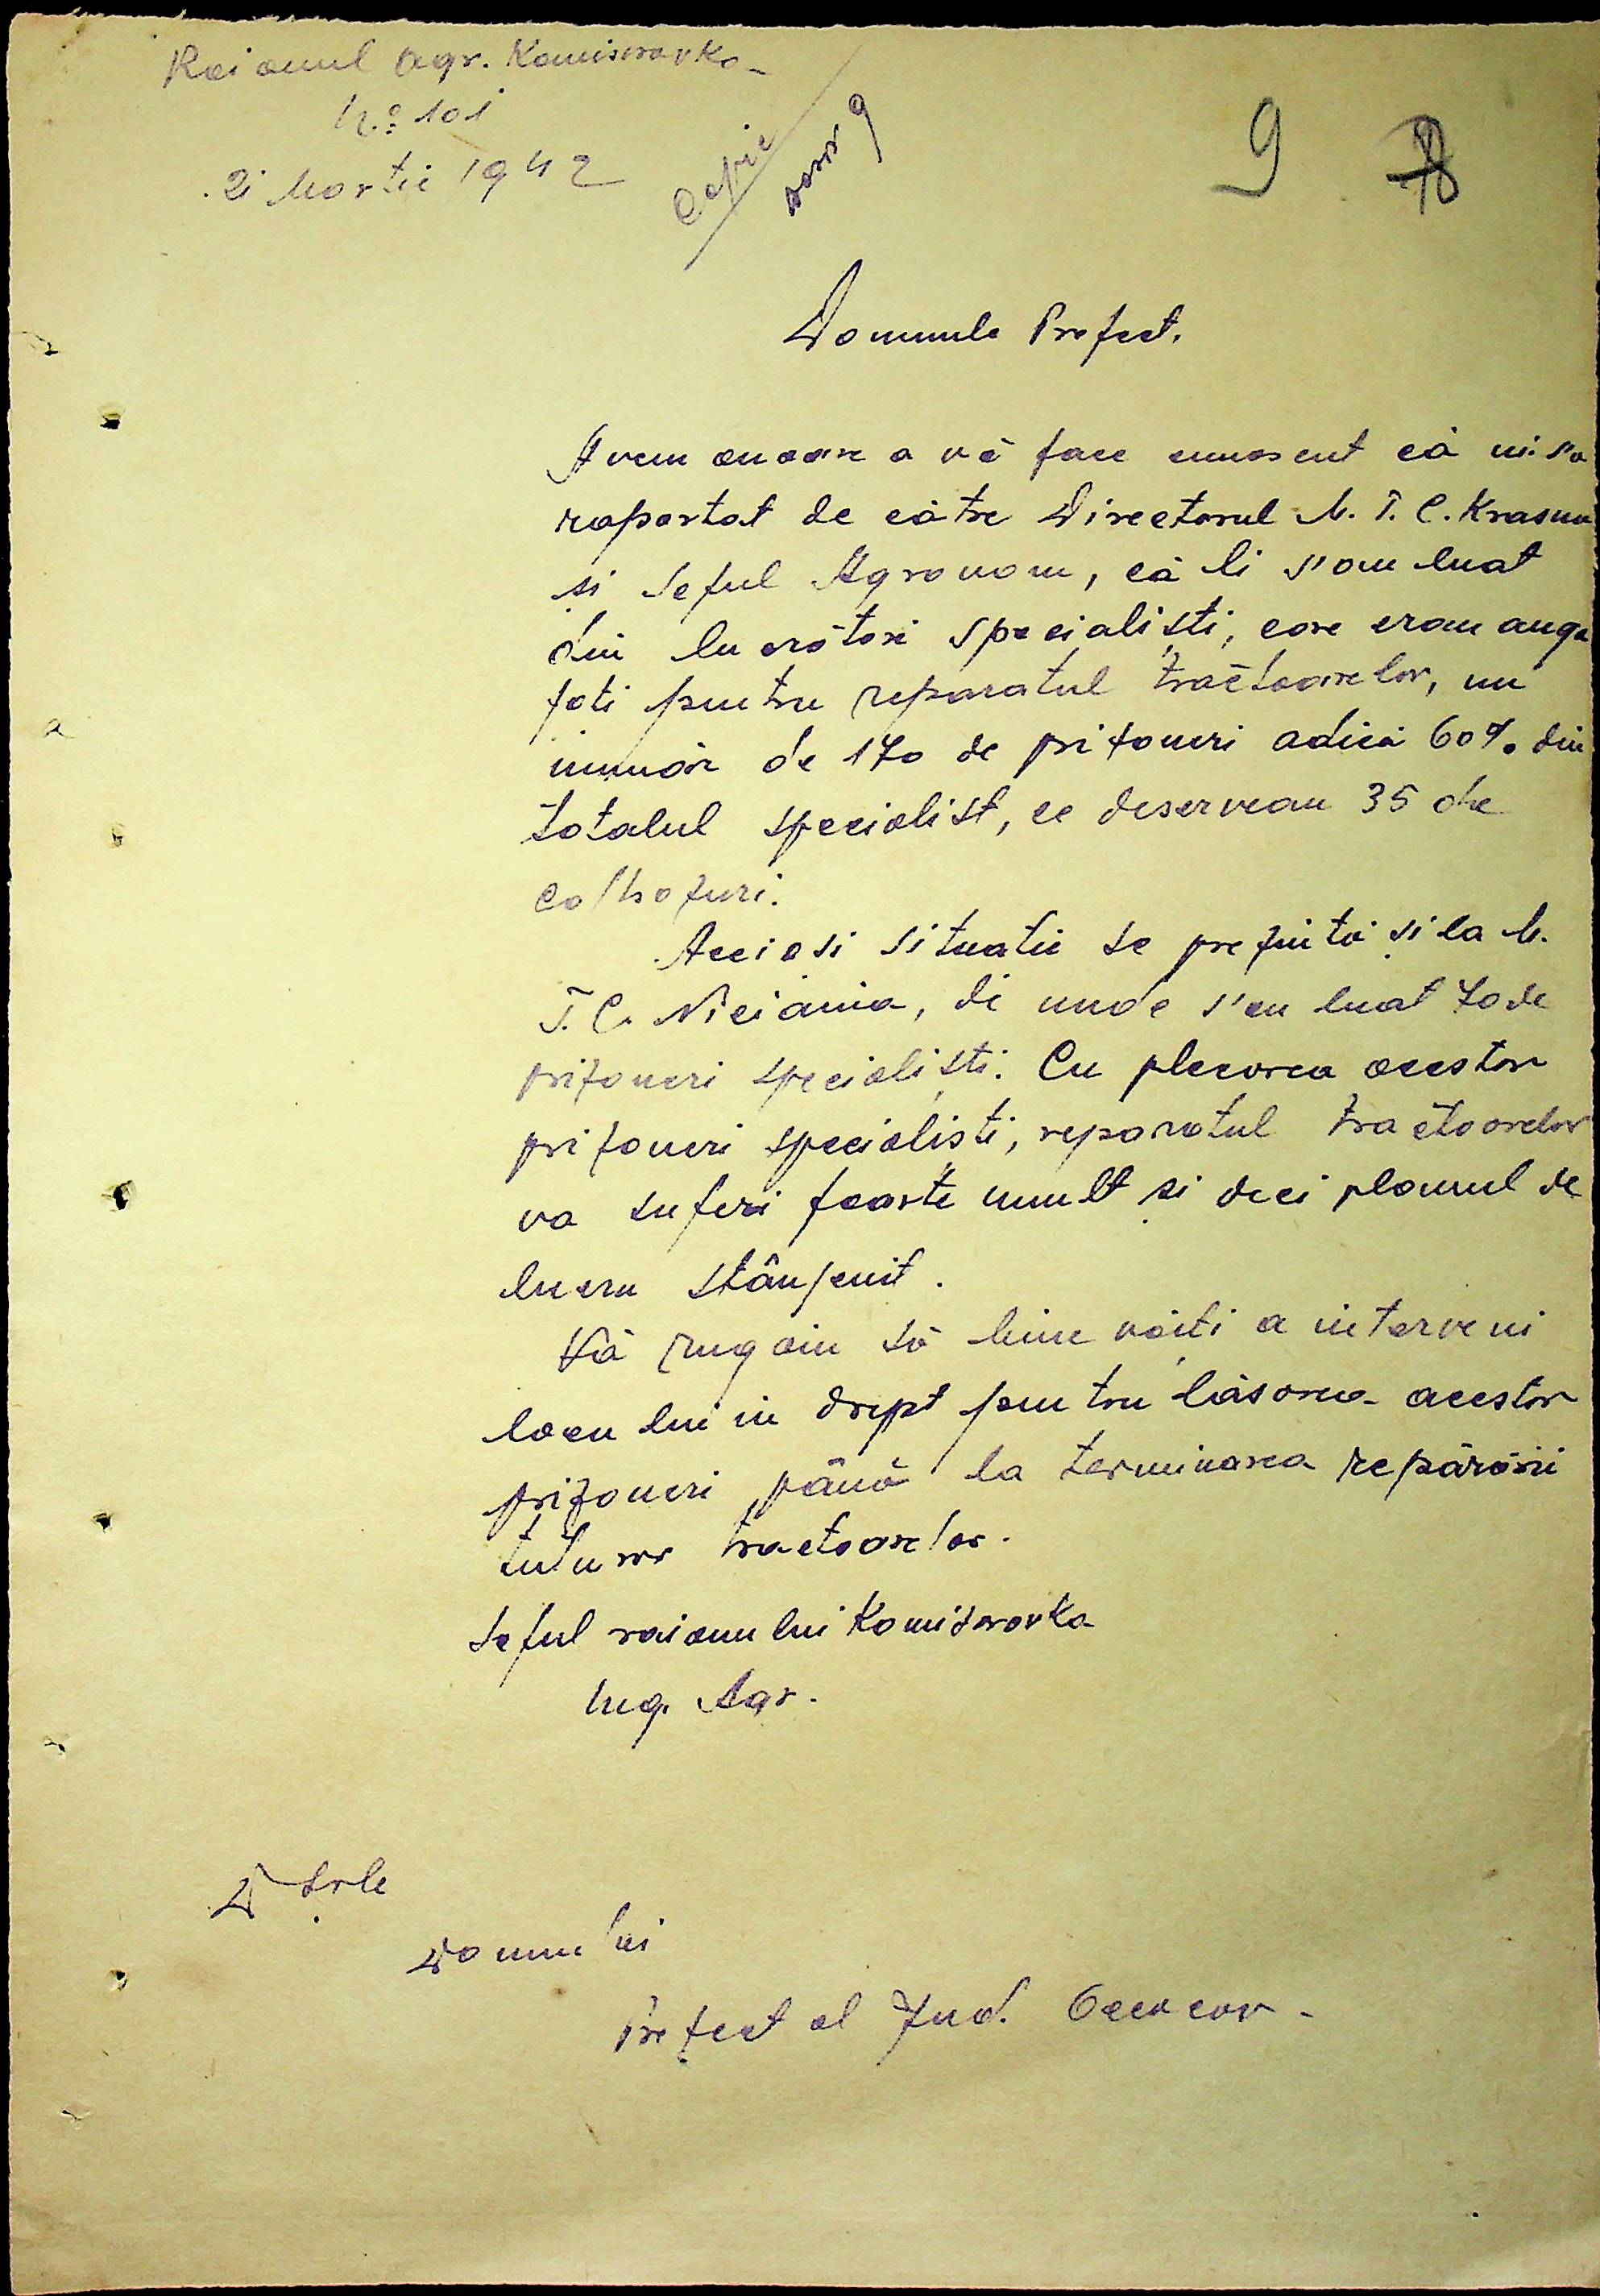 Raionul Agr. Komisarovka
No 101
21 Martie 1942
Copie
dosar 9
9
Domnule Prefect.
Avem onoare a vă face cunoscut că ni s'a
raportat de către Directorul M. T. C. Krasna
și Șeful Agronom, că li s'au luat
din lucrători specialiști, care erau anga
jati pentru reparatul tractoarelor, un
număr de 170 de prizoneri adică 60% din
totalul specialist, ce deserveau 35 de
colhozuri.
Aceiasi situatie se prezintă și la M.
T. C. Niciania, di unde s'au luat 70 de
prizoneri specialiști. Cu plecarea acestor
prizoneri specialisti, reparatul tractoarelor
va suferi foarte mult și deci planul de
lucru stânjenit.
Vă rugăm să bine voiți a interveni
locului in drept pentru lăsarea acestor
prizoneri până la terminarea repărării
tuturor tractoarelor.
Seful raionului Komisarovka
Ing. Agr.
D Sale
Domnului
Prefect al Jud. Oceacov